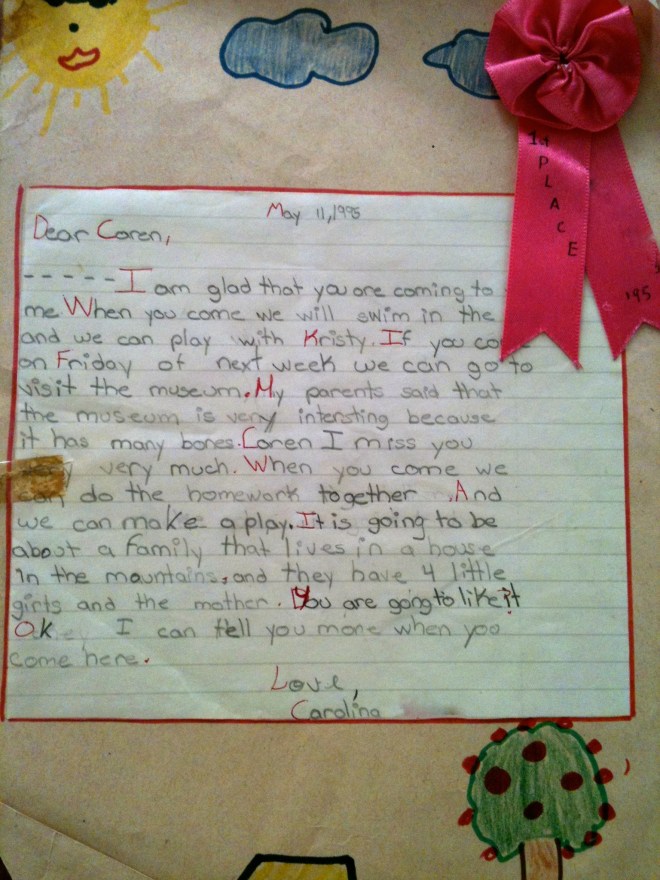 May 11, 1995
Dear Coren,
- - - - - I am glad that you are coming to
me When you come we will swim in the
and we can play with Kristy. If you
on Friday of next week we can go to
visit the museum. My parents said that
the museum is very intersting because
it has many bones. Coren I miss you
very much. When you come we
can do the homework together . And
we can make a play. It is going to be
about a family that lives in a house
in the mountains, and they have 4 little
girls and the mother. You are going to like it
Ok I can tell you more when yoo
come here.
Love,
Carolina
1st
PLACE
'95